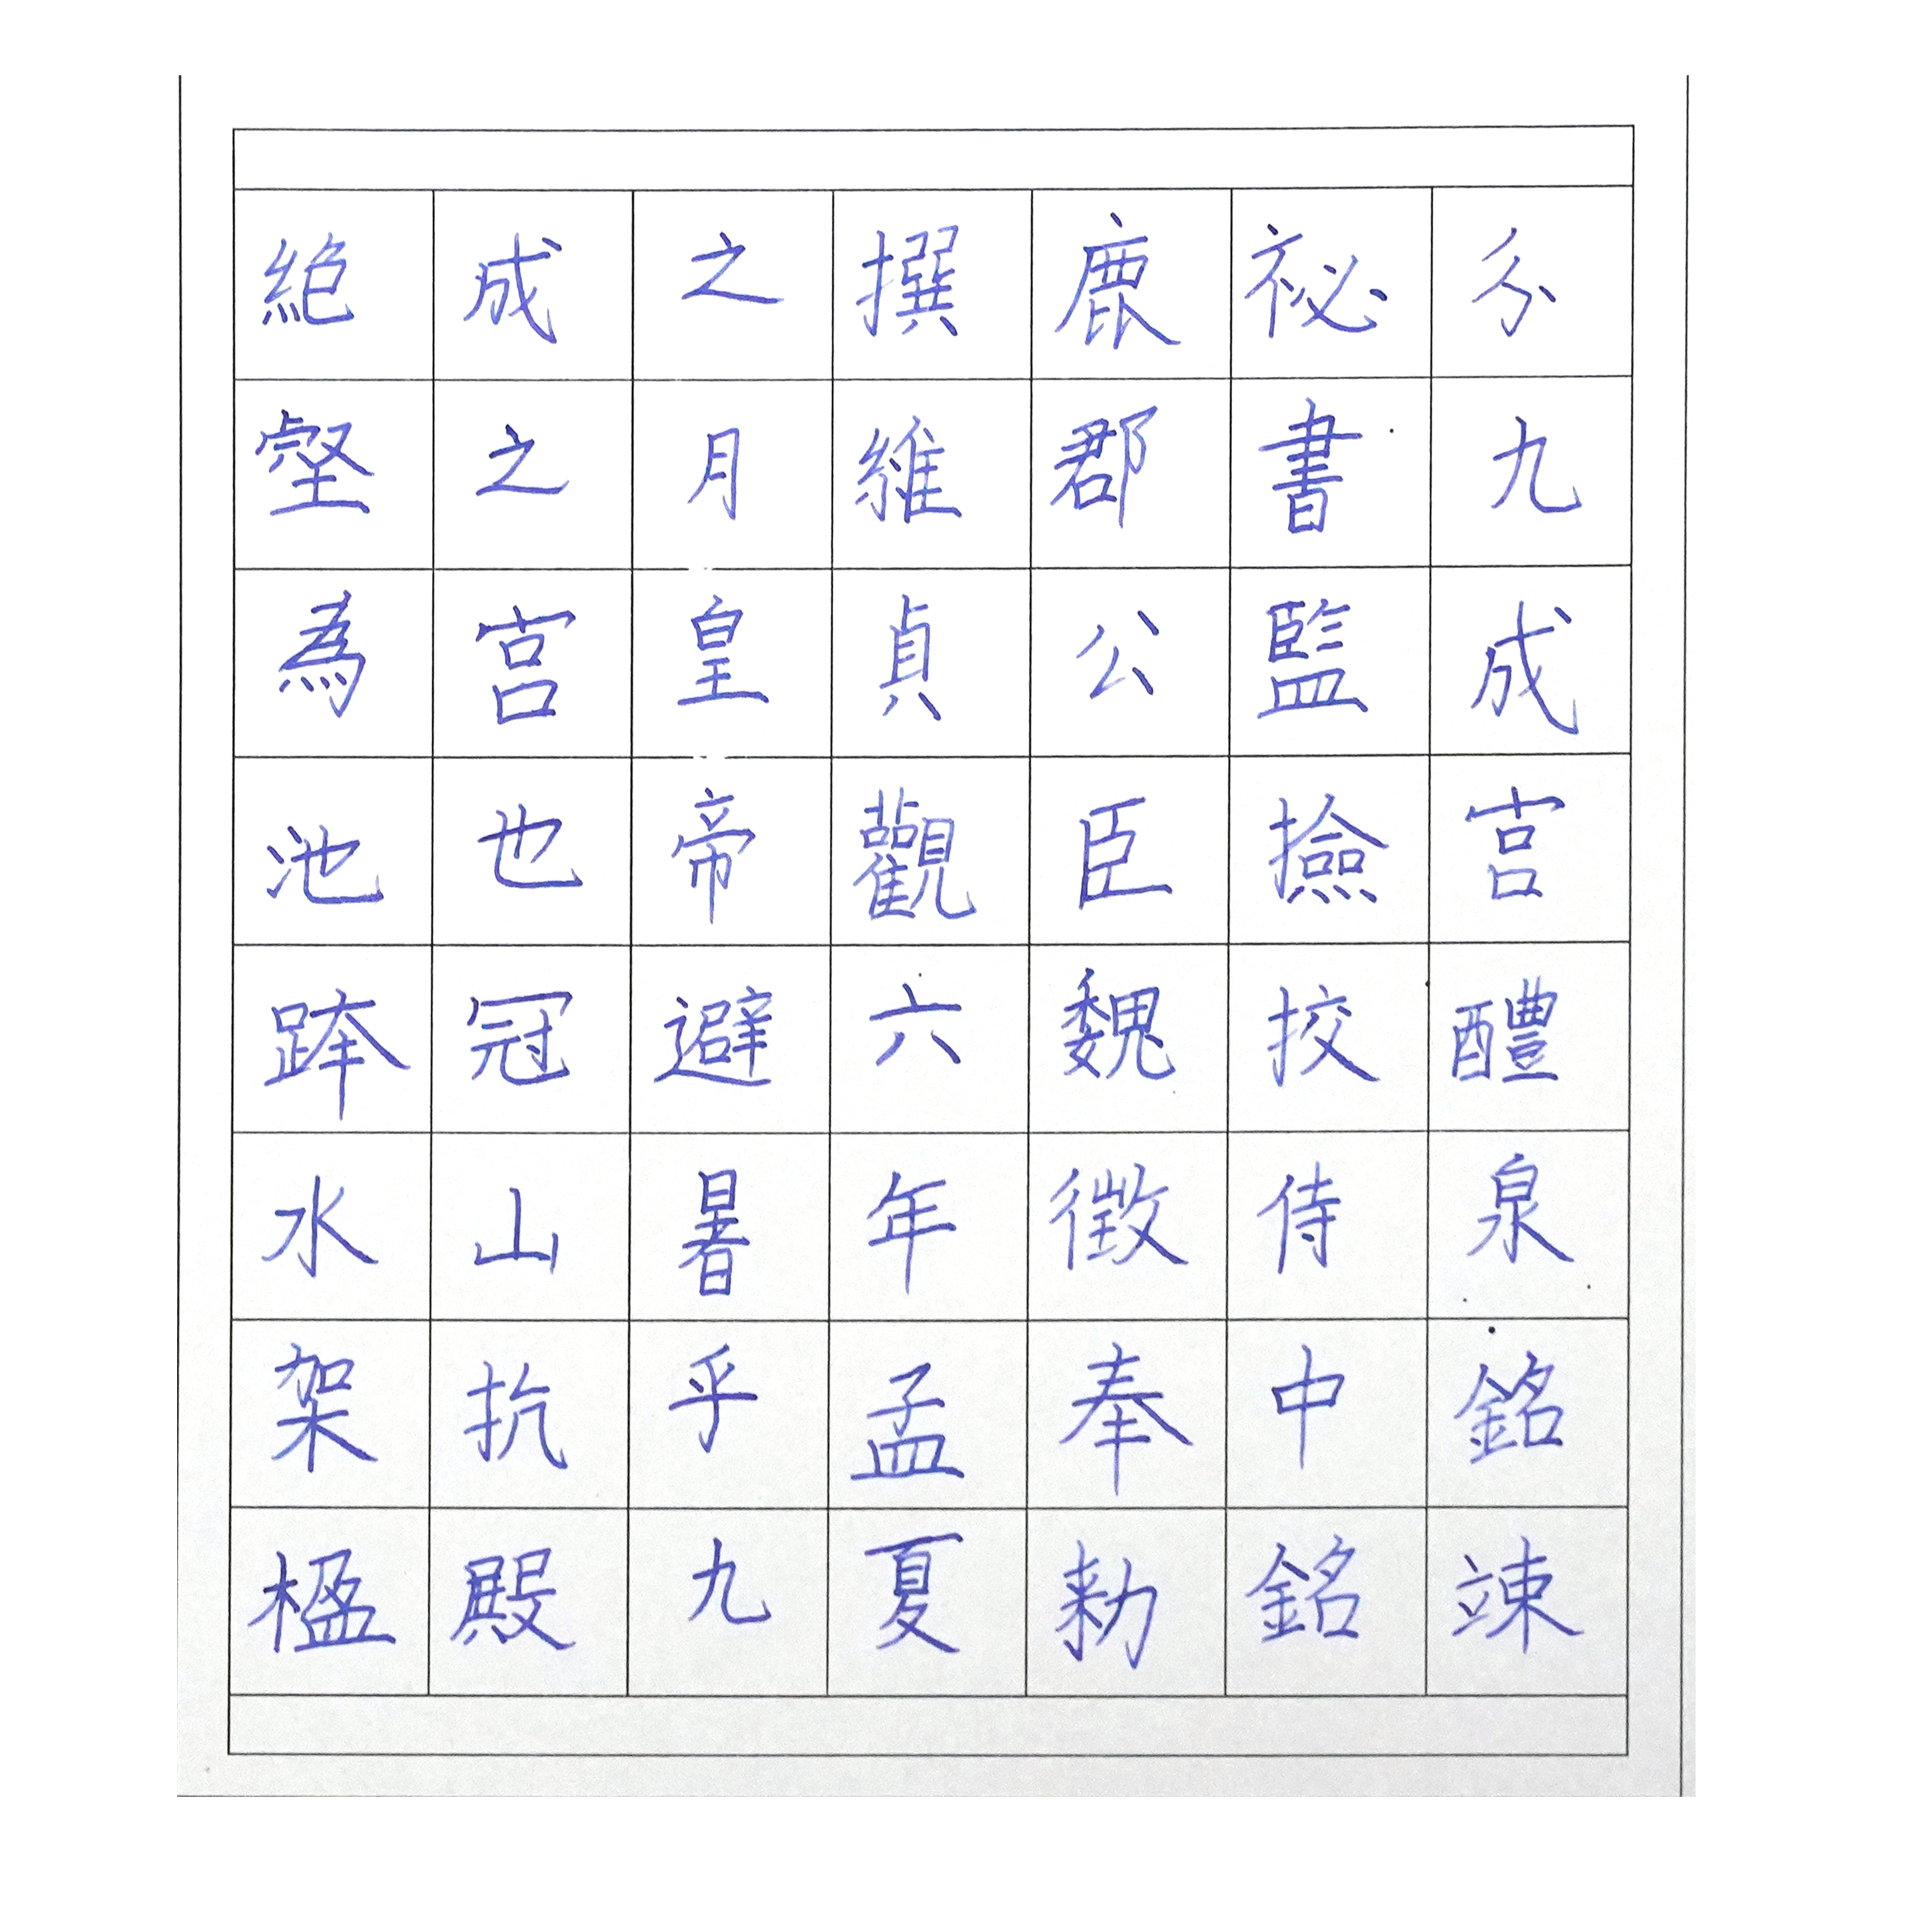 分九成宮醴泉銘竦
祕書監撿挍侍中銘
鹿郡公臣魏徵奉勑
撰維貞觀六年孟夏
之月皇帝避暑乎九
成之宮也冠山抗殿
絕壑為池跨水架楹